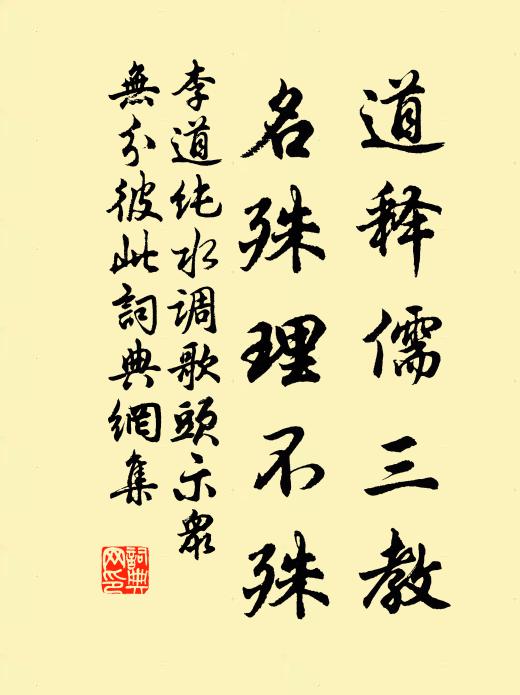 道释儒三教
名殊理不殊
李道纯水调歌頭示眾
無分彼此詞典網集
詞典网印